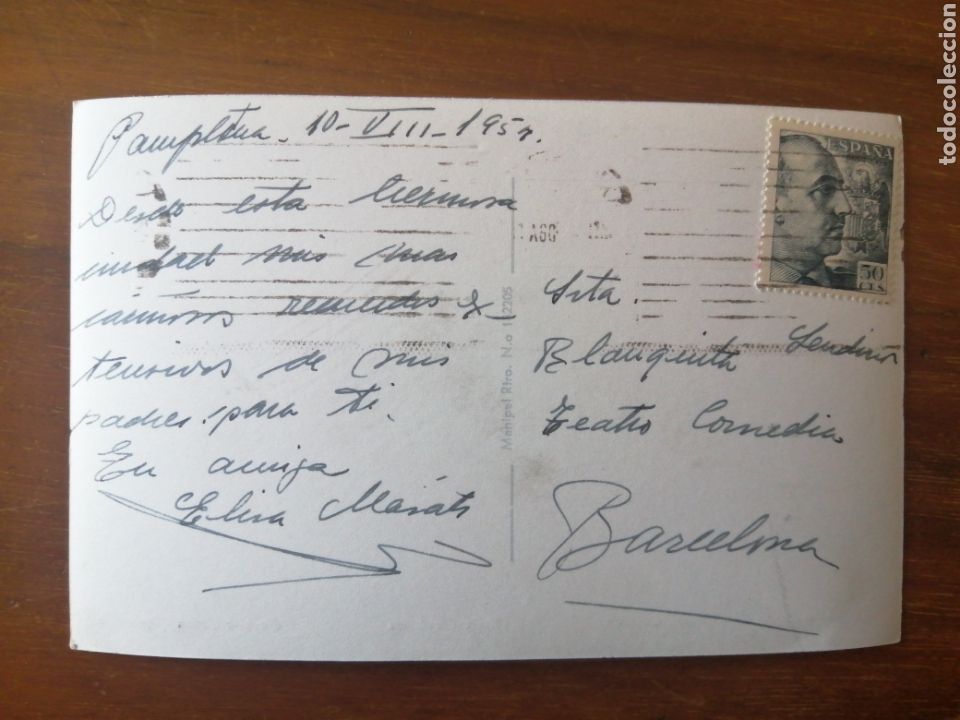 Pamplona. 10-VIII-195
Desde esta hermosa
ciudad mis mas
cariñosos recuerdos ex
tensivos de mis
padres para ti.
Tu amiga
Elisa
Srta.
Blanquita
Teatro Comedia
Barcelona
ESPAÑA
50
CTS
AGO
Manipel Rtro. N.o
todocoleccion